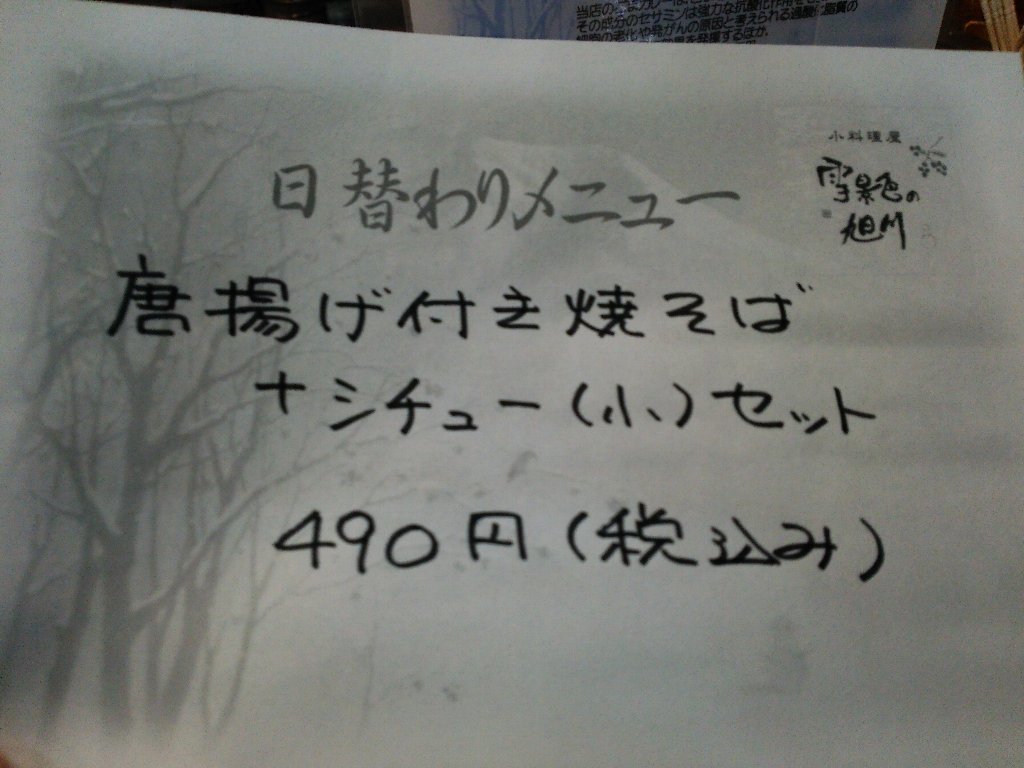 その成分のセサミンは強力な抗酸化作用を
細胞の老化や発がんの原因と考えられる過酸化脂質の
小料理屋
雪景色の
旭川
日替わりメニュー
唐揚げ付き焼そば
+シチュー(小)セット
490円(税込み)